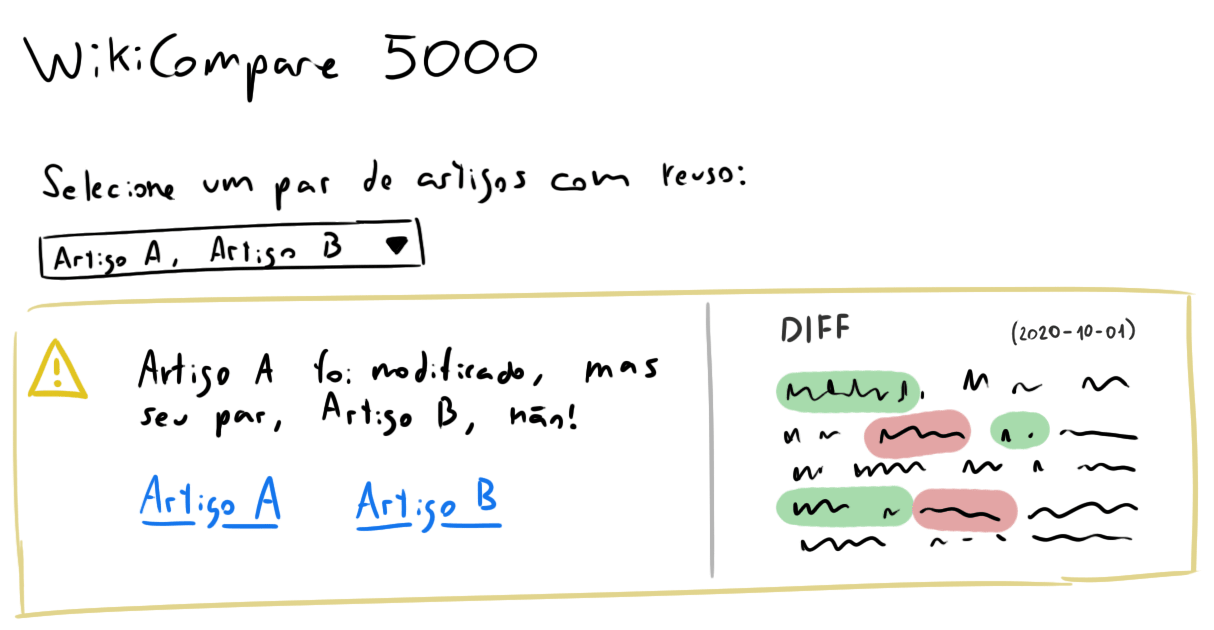 WikiCompare 5000
Selecione um par de artigos com reuso:
Artigo A, Artigo B
Artigo A foi modificado, mas
seu par, Artigo B, não!
Artigo A Artigo B
DIFF (2020-10-01)